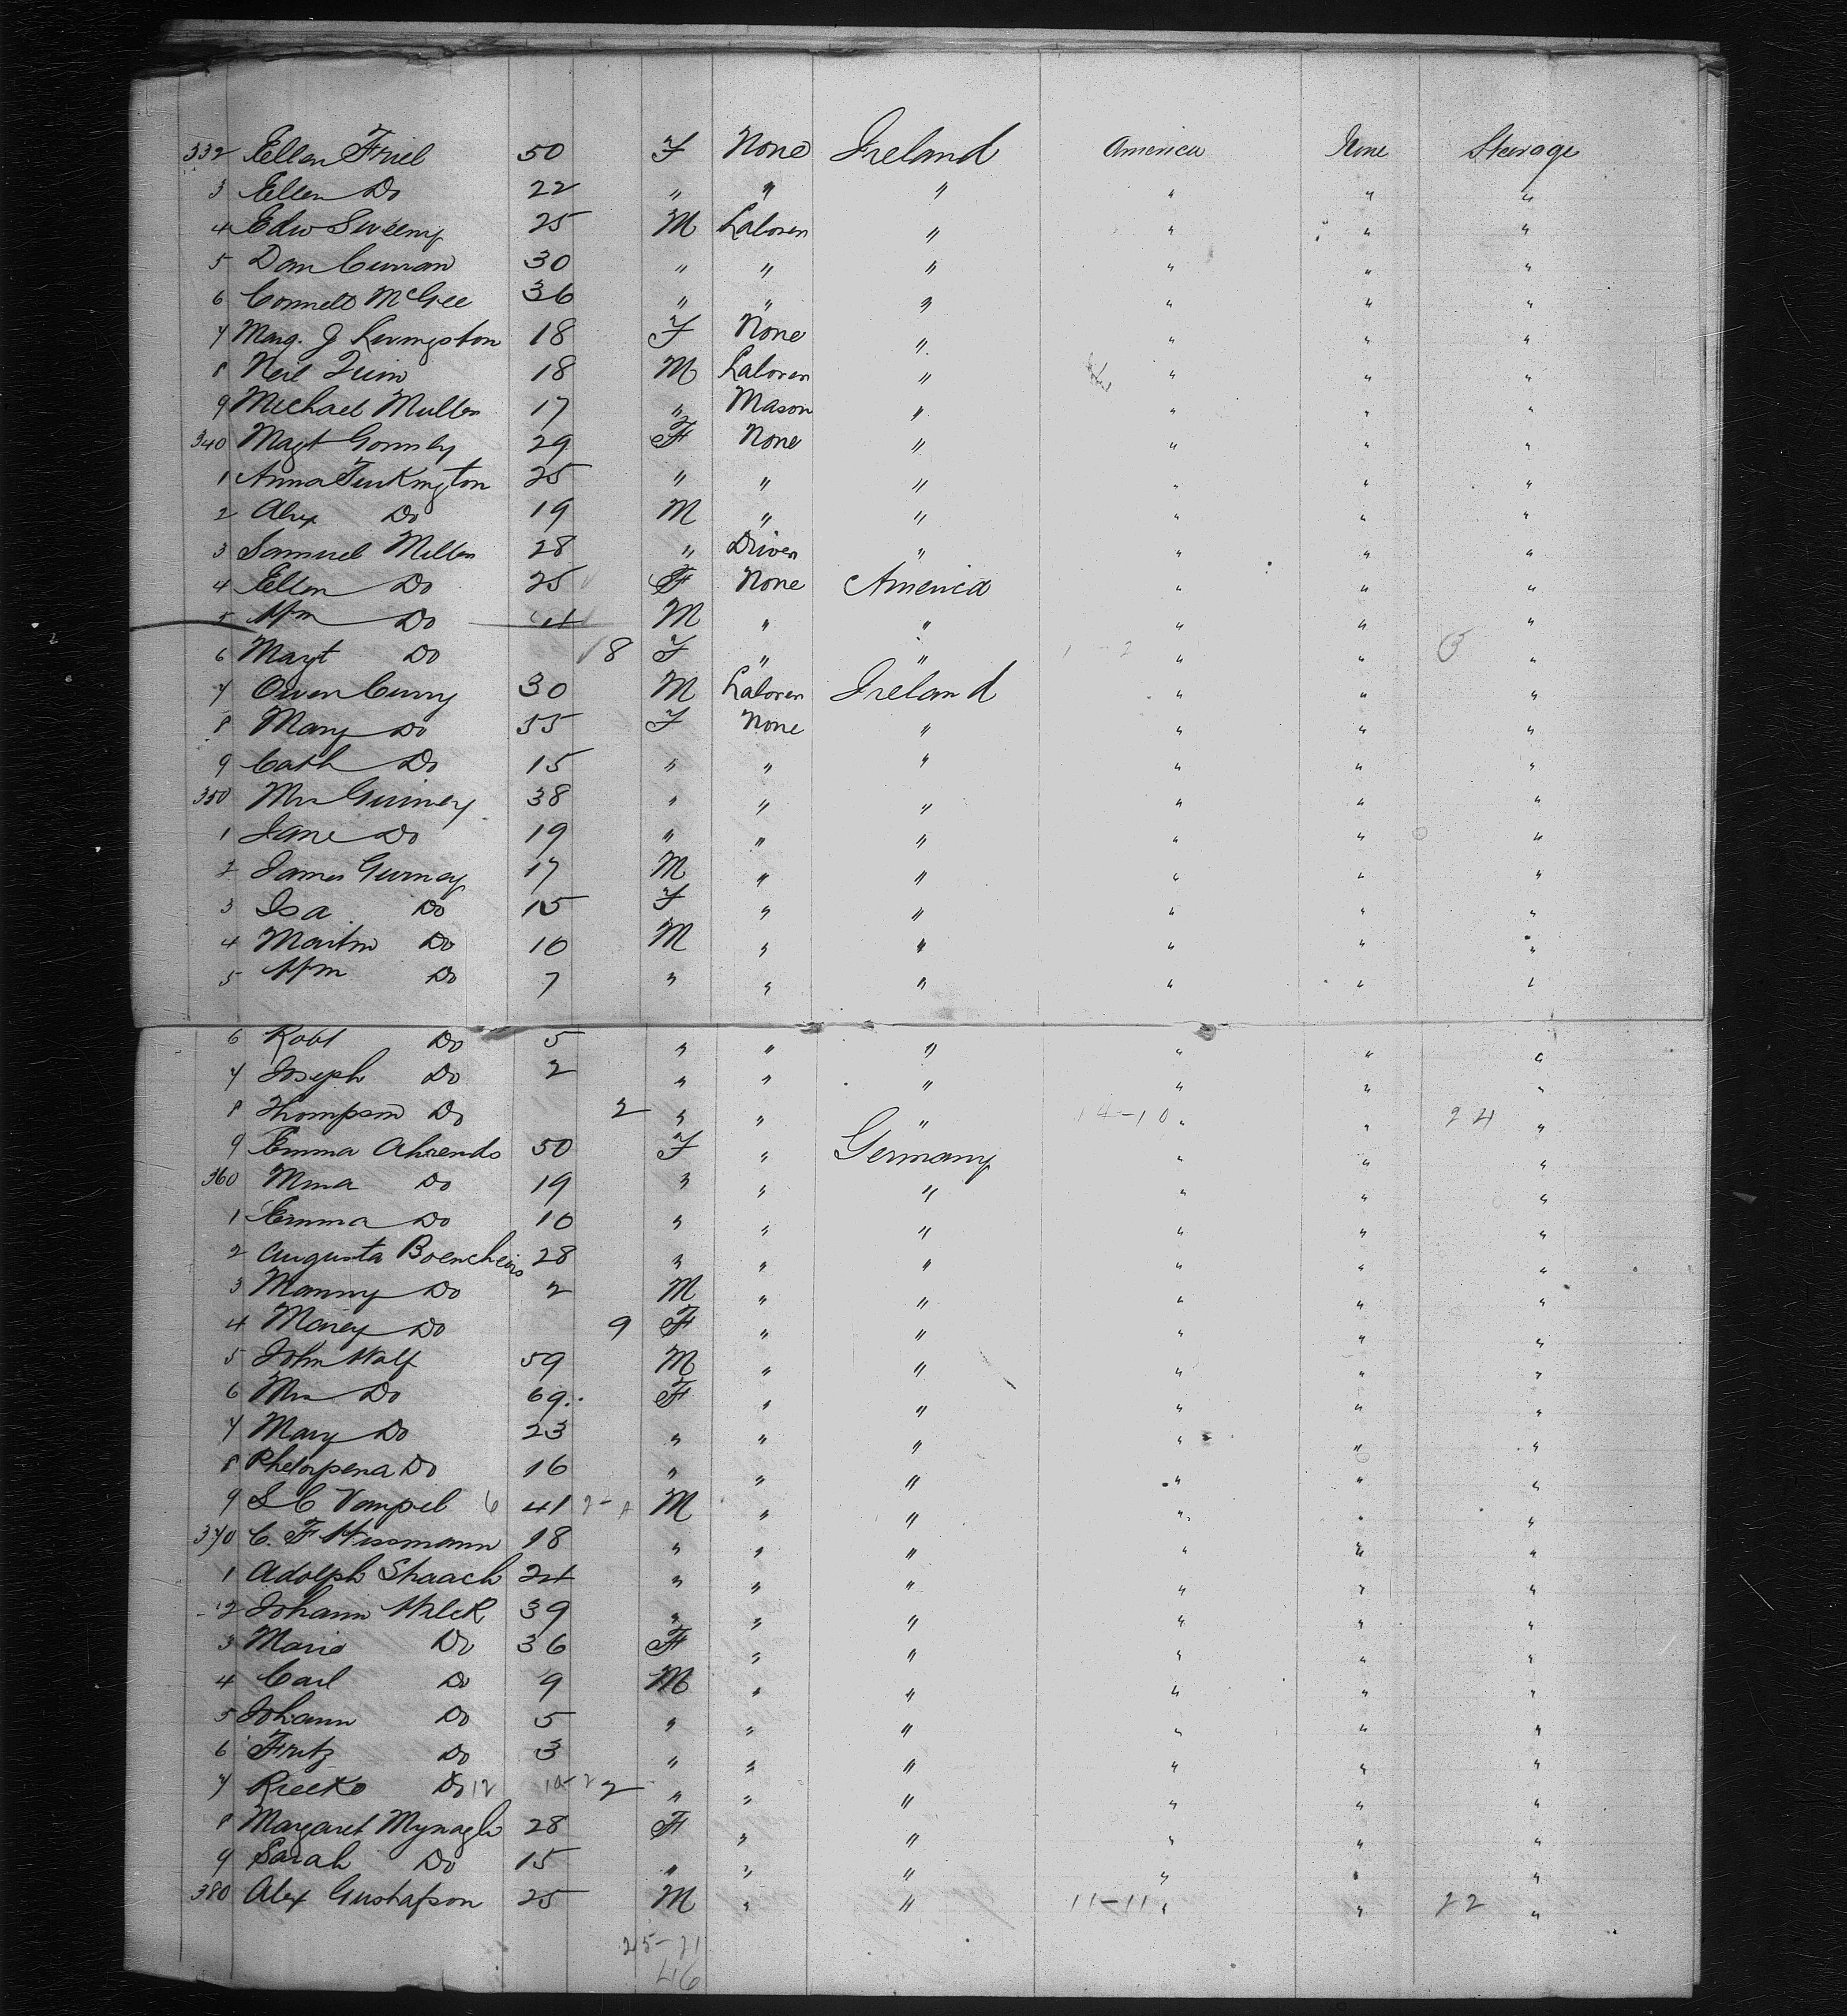 332 Ellen Friel 50 F None Ireland America None Steerage
3 Ellen Do 22 " " " " " "
4 Edw Sweeny 25 M Laborer " " " "
5 Dan Curran 30 " " " " " "
6 Connell McGee 36 " " " " " "
7 Marg. J Livingston 18 F None " " " "
8 Neil Quin 18 M Laborer " " " "
9 Michael Mullen 17 " Mason " " " "
340 Magt Gormley 29 F None " " " "
1 Anna Turkington 25 " " " " " "
2 Alex Do 19 M " " " " "
3 Samuel Miller 28 " Driver " " " "
4 Ellen Do 25 F None America " " "
5 Wm Do 4 M " " " " "
6 Magt Do 8 F " " 1-2 " " "
7 Owen Curry 30 M Laborer Ireland " " "
8 Mary Do 55 F None " " " "
9 Cath Do 15 " " " " " "
350 Mrs Guiney 38 " " " " " "
1 Jane Do 19 " " " " " "
2 James Gurney 17 M " " " " "
3 Isa Do 15 F " " " " "
4 Martin Do 10 M " " " " "
5 Wm Do 7 " " " " " "
6 Robt Do 5 " " " " " "
7 Joseph Do 2 " " " " " "
8 Thompson Do 2 " " " 14-10 " " 24 "
9 Emma Ahrends 50 F " Germany " " "
360 Mina Do 19 " " " " " "
1 Emma Do 10 " " " " " "
2 Augusta 28 " " " " " "
3 Manny Do 2 M " " " " "
4 Marey Do 9 F " " " " "
5 John Wolf 59 M " " " " "
6 Mrs Do 69 F " " " " "
7 Mary Do 23 " " " " " "
8 Do 16 " " " " " "
9 S C Vampel 6 41 M " " " " "
370 C. F Wissmann 18 " " " " " "
1 Adolph Shaach 24 " " " " " "
2 Johann Wilck 39 " " " " " "
3 Marie Do 36 F " " " " "
4 Carl Do 9 M " " " " "
5 Johann Do 5 " " " " " "
6 Fritz Do 3 " " " " " "
7 Rieeke Do 12 10-2 2 " " " " " "
8 Margaret Mynagh 28 F " " " " "
9 Sarah Do 15 " " " " " "
380 Alex Gustafson 25 M " " 11-11 " " 22 "
25-21
46